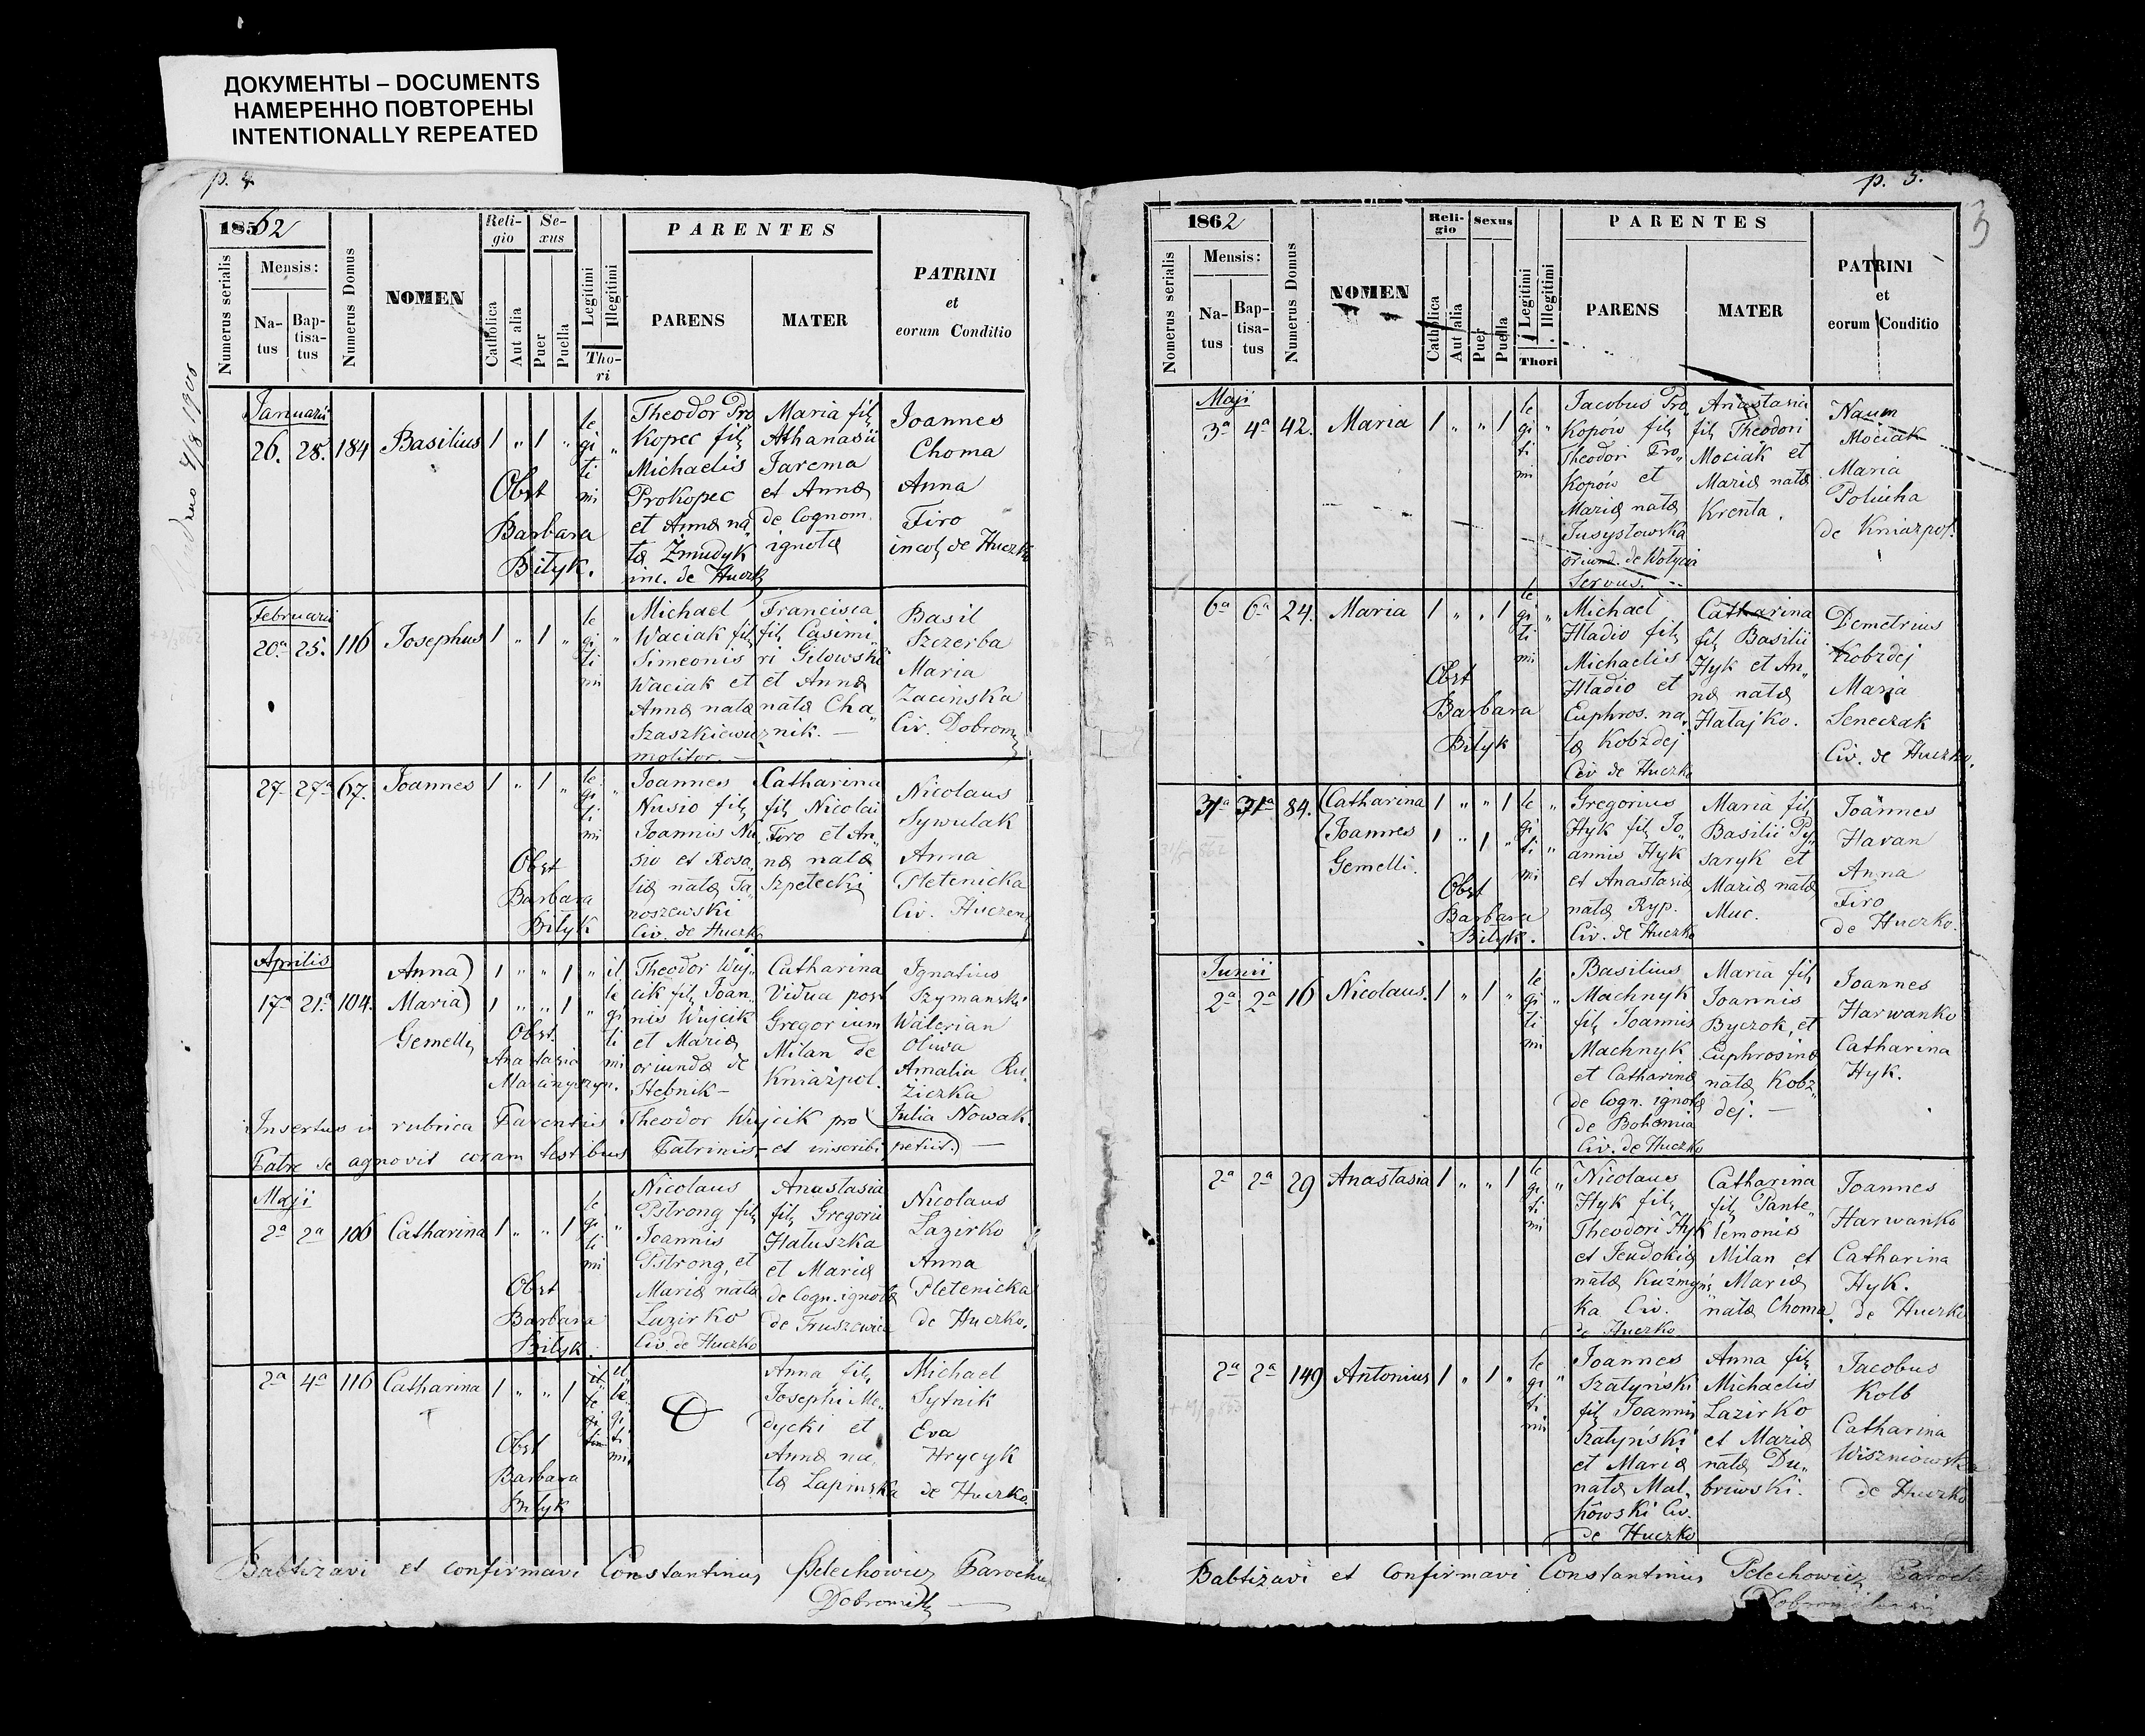 ДОКУМЕНТЫ – DOCUMENTS
НАМЕРЕННО ПОВТОРЕНЫ
INTENTIONALLY REPEATED
p. 4
1862
Numerus serialis
Mensis:
Natus
Baptisatus
Numerus Domus
NOMEN
Religio
Catholica
Aut alia
Sexus
Puer
Puella
Legitimi
Illegitimi
Thori
PARENTES
PARENS
MATER
PATRINI
et
eorum Conditio
Januarii
26. 28. 184 Basilius 1 " 1 "
le
gi
ti
mi
Obst
Barbara
Bityk.
Theodor Pro
kopec fil
Michaelis
Prokopec
et Annæ na
tæ Żmudyk
inc. de Huczk
Maria fil
Athanasii
Jarema
et Annæ
de Cognom.
ignotæ
Joannes
Choma
Anna
Firo
incol de Huczko
Februarii
20ª 25. 116 Josephus 1 " 1 "
le
gi
ti
mi
Michael
Waciak fil
Simeonis
Waciak et
Annæ natæ
Szaszkiewicz
molitor.
Francisca
fil Casimi
ri Gelowski
et Annæ
natæ Cha
znik. —
Basil
Szczerba
Maria
Zacinska
Civ. Dobrom
27 27ª 67. Joannes 1 " 1 "
le
gi
ti
mi
Obst
Barbara
Bityk
Joannes
Nusio fil
Joannis Nu
sio et Rosa
liæ natæ Ta
noszewski
Civ. de Huczk
Catharina
fil Nicolai
Firo et An
næ natæ
Szpetecki
Nicolaus
Sywulak
Anna
Pletenicka
Civ. Huczen
Aprilis
17ª 21ª 104.
Anna) 1 " " 1
Maria) 1 " " 1
Gemelli
il
le
gi
ti
mi
Obst.
Anastasia
Theodor Wuj
cik fil Joan
nis Wujcik
et Mariæ
oriundæ de
Hebnik —
Catharina
Vidua post
Gregorium
Milan de
Kniażpol.
Ignatius
Szymanski
Walerian
Oliwa
Amalia Ru
ziczka
Julia Nowak.
Insertus in rubrica Parentis Theodor Wujcik pro
Patre se agnovit coram testibus Patrinis et inscribi petiit.) —
Maji
2ª 2ª 106 Catharina 1 " " 1
le
gi
ti
mi
Obst
Barbara
Bityk.
Nicolaus
Pstrong fil
Joannis
Pstrong, et
Mariæ natæ
Lazirko
Civ. de Huczko
Anastasia
fil Gregorii
Hatuszka
et Mariæ
de Cogn. ignotæ
de Truszewice
Nicolaus
Lazirko
Anna
Pletenicka
de Huczko.
2ª 4ª 116 Catharina 1 " " 1
il
le
gi
ti
mi
Obst
Barbara
Bityk
Anna fil
Josephi Me
dycki et
Annæ na
tæ Lapinska
Michael
Sytnik
Eva
Hrycyk
de Huczko.
Babtizavi et confirmavi Constantinus Pelechowicz Parochus
Dobromil
p. 5.
3
1862
Nomerus serialis
Mensis:
Natus
Baptisatus
Numerus Domus
NOMEN
Religio
Catholica
Aut alia
Sexus
Puer
Puella
Legitimi
Illegitimi
Thori
PARENTES
PARENS
MATER
PATRINI
et
eorum Conditio
Maji
3ª 4ª 42. Maria 1 " " 1
le
gi
ti
mi
Jacobus Pro
kopów fil
Theodori Pro
kopów et
Mariæ natæ
Jusystowska
oriund. de Wotycia
Servus.
Anastasia
fil Theodori
Mociak et
Mariæ natæ
Krenta.
Naum
Mociak
Maria
Poliuha
de Kniażpol.
6ª 6ª 24. Maria 1 " " 1
le
gi
ti
mi
Obst
Barbara
Bityk
Michael
Hladio fil
Michaelis
Hladio et
Euphros. na
tæ Kobzdej
Civ de Huczko
Catharina
fil Basilii
Hyk et An
næ natæ
Hatajko.
Demetrius
Kobzdej
Maria
Seneczak
Civ. de Huczko.
31ª 31ª 84.
Catharina 1 " " 1
Joannes 1 " 1 "
Gemelli.
le
gi
ti
mi
Obst
Barbara
Bityk.
Gregorius
Hyk fil Jo
annis Hyk
et Anastasiæ
natæ Ryp.
Civ. de Huczko
Maria fil
Basilii Py
saryk et
Mariæ natæ
Muc.
Joannes
Havan
Anna
Firo
de Huczko.
Junii
2ª 2ª 16 Nicolaus. 1 " 1 "
le
gi
ti
mi
Basilius
Machnyk
fil Joannis
Machnyk
et Catharinæ
de Cogn. ignotæ
de Bohemia
Civ. de Huczko
Maria fil
Joannis
Byczok, et
Euphrosinæ
natæ Kobz
dej. —
Joannes
Harwanko
Catharina
Hyk.
2ª 2ª 29 Anastasia 1 " " 1
le
gi
ti
mi
Nicolaus
Hyk fil
Theodori Hyk
et Jeudokiæ
natæ Kuzmyń
ka Civ.
de Huczko
Catharina
fil Pante
lemonis
Milan et
Mariæ
natæ Choma.
Joannes
Harwanko
Catharina
Hyk.
de Huczko
2ª 2ª 149 Antonius 1 " 1 "
le
gi
ti
mi
Joannes
Szatyński
fil Joannis
Szatyński
et Mariæ
natæ Mal
howski Civ.
de Huczko
Anna fil
Michaelis
Lazirko
et Mariæ
natæ Du
briwski.
Jacobus
Kolb
Catharina
Wiszniowska
de Huczko
Babtizavi et Confirmavi Constantinus Pelechowicz Paroch